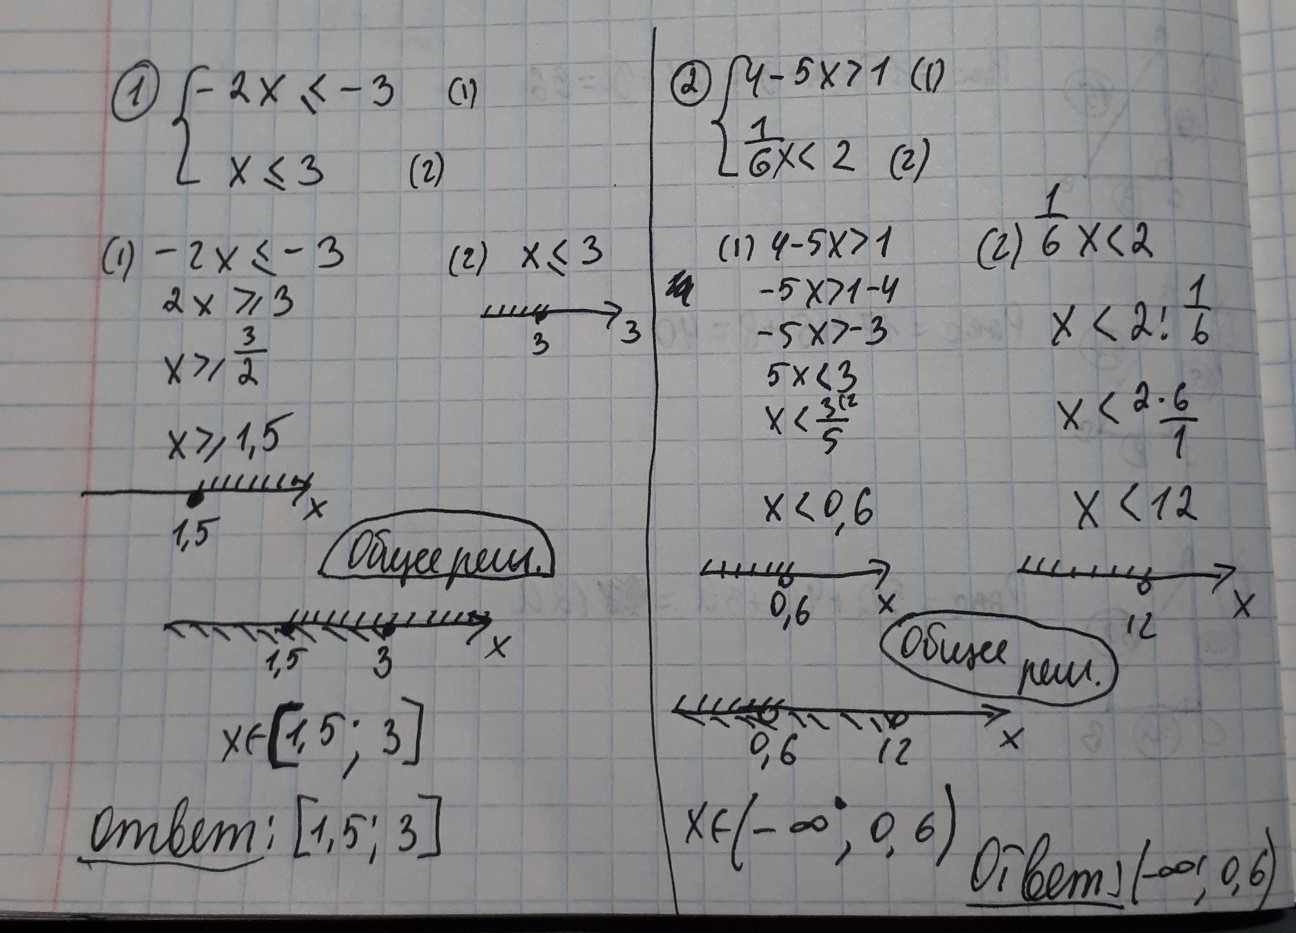 ① { -2x ≤ -3 (1)
x ≤ 3 (2)
(1) -2x ≤ -3
2x ⩾ 3
x ⩾ 3/2
x ⩾ 1,5
1,5 x
(2) x ≤ 3
3 3
Общее реш.
1,5 3 x
x∈[1,5; 3]
Ответ: [1,5; 3]
② { 4-5x>1 (1)
1/6 x < 2 (2)
(1) 4-5x>1
-5x>1-4
-5x>-3
5x<3
x < 3/5
x<0,6
0,6 x
(2) 1/6 x<2
x < 2: 1/6
x < 2·6/1
x < 12
12 x
Общее
реш.
0,6 12 x
x∈(-∞; 0,6)
Ответ: (-∞; 0,6)